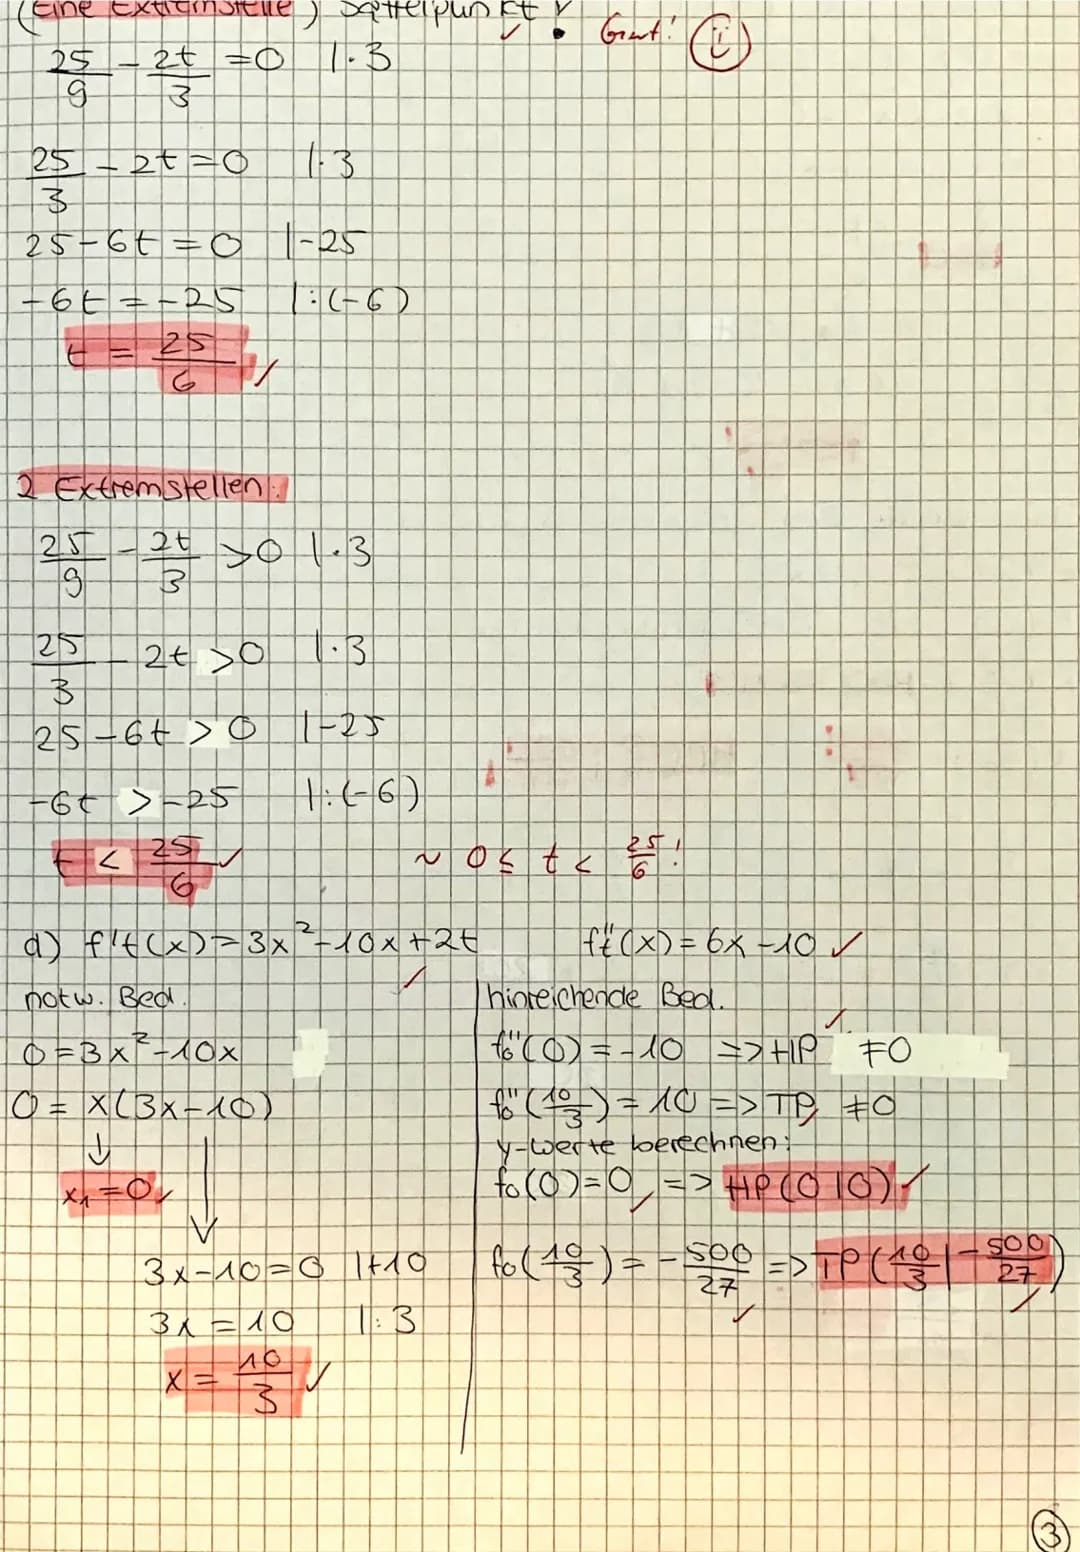 (Eine Extremstelle) Sattelpunkt ✓ • Graut! ü
25/9 - 2t/3 = 0 |·3
25/3 - 2t = 0 |·3
25 - 6t = 0 |-25
-6t = -25 |:(-6)
t = 25/6 ✓
2 Extremstellen:
25/9 - 2t/3 > 0 |·3
25/3 - 2t > 0 |·3
25 - 6t > 0 |-25
-6t > -25 |:(-6)
t < 25/6 ✓ ~ 0 ≤ t < 25/6 !
d) f't(x) = 3x² - 10x + 2t ft''(x) = 6x - 10 ✓
notw. Bed. ✓
0 = 3x² - 10x
0 = x(3x - 10)
↓
x₁ = 0 ✓
3x - 10 = 0 |+10
3x = 10 |:3
x = 10/3 ✓
hinreichende Bed.
f₀''(0) = -10 => HP ✓ ≠0
f₀''(10/3) = 10 => TP, ≠0
y-Werte berechnen:
f₀(0) = 0 ✓ => HP(0|0) ✓
f₀(10/3) = -500/27 ✓ => TP(10/3 | -500/27) ✓
3